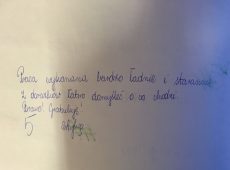 Praca wykonana bardzo ładnie i starannie
z obrazków łatwo domyśleć o co chodzi.
Brawo! Gratuluję!
5